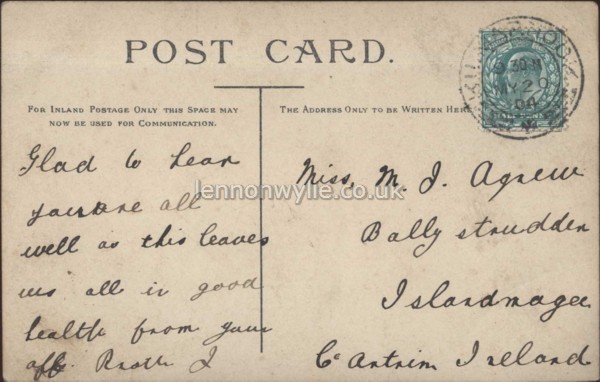 POST CARD.
FOR INLAND POSTAGE ONLY THIS SPACE MAY
NOW BE USED FOR COMMUNICATION.
THE ADDRESS ONLY TO BE WRITTEN HERE
HALF PENNY
MY 29
04
Glad to hear
you are all
well as this leaves
us all in good
health from your
aff. Broth J
Miss, M. J. Agnew
Bally strudden
Islandmagee
Co Antrim Ireland
lennonwylie.co.uk